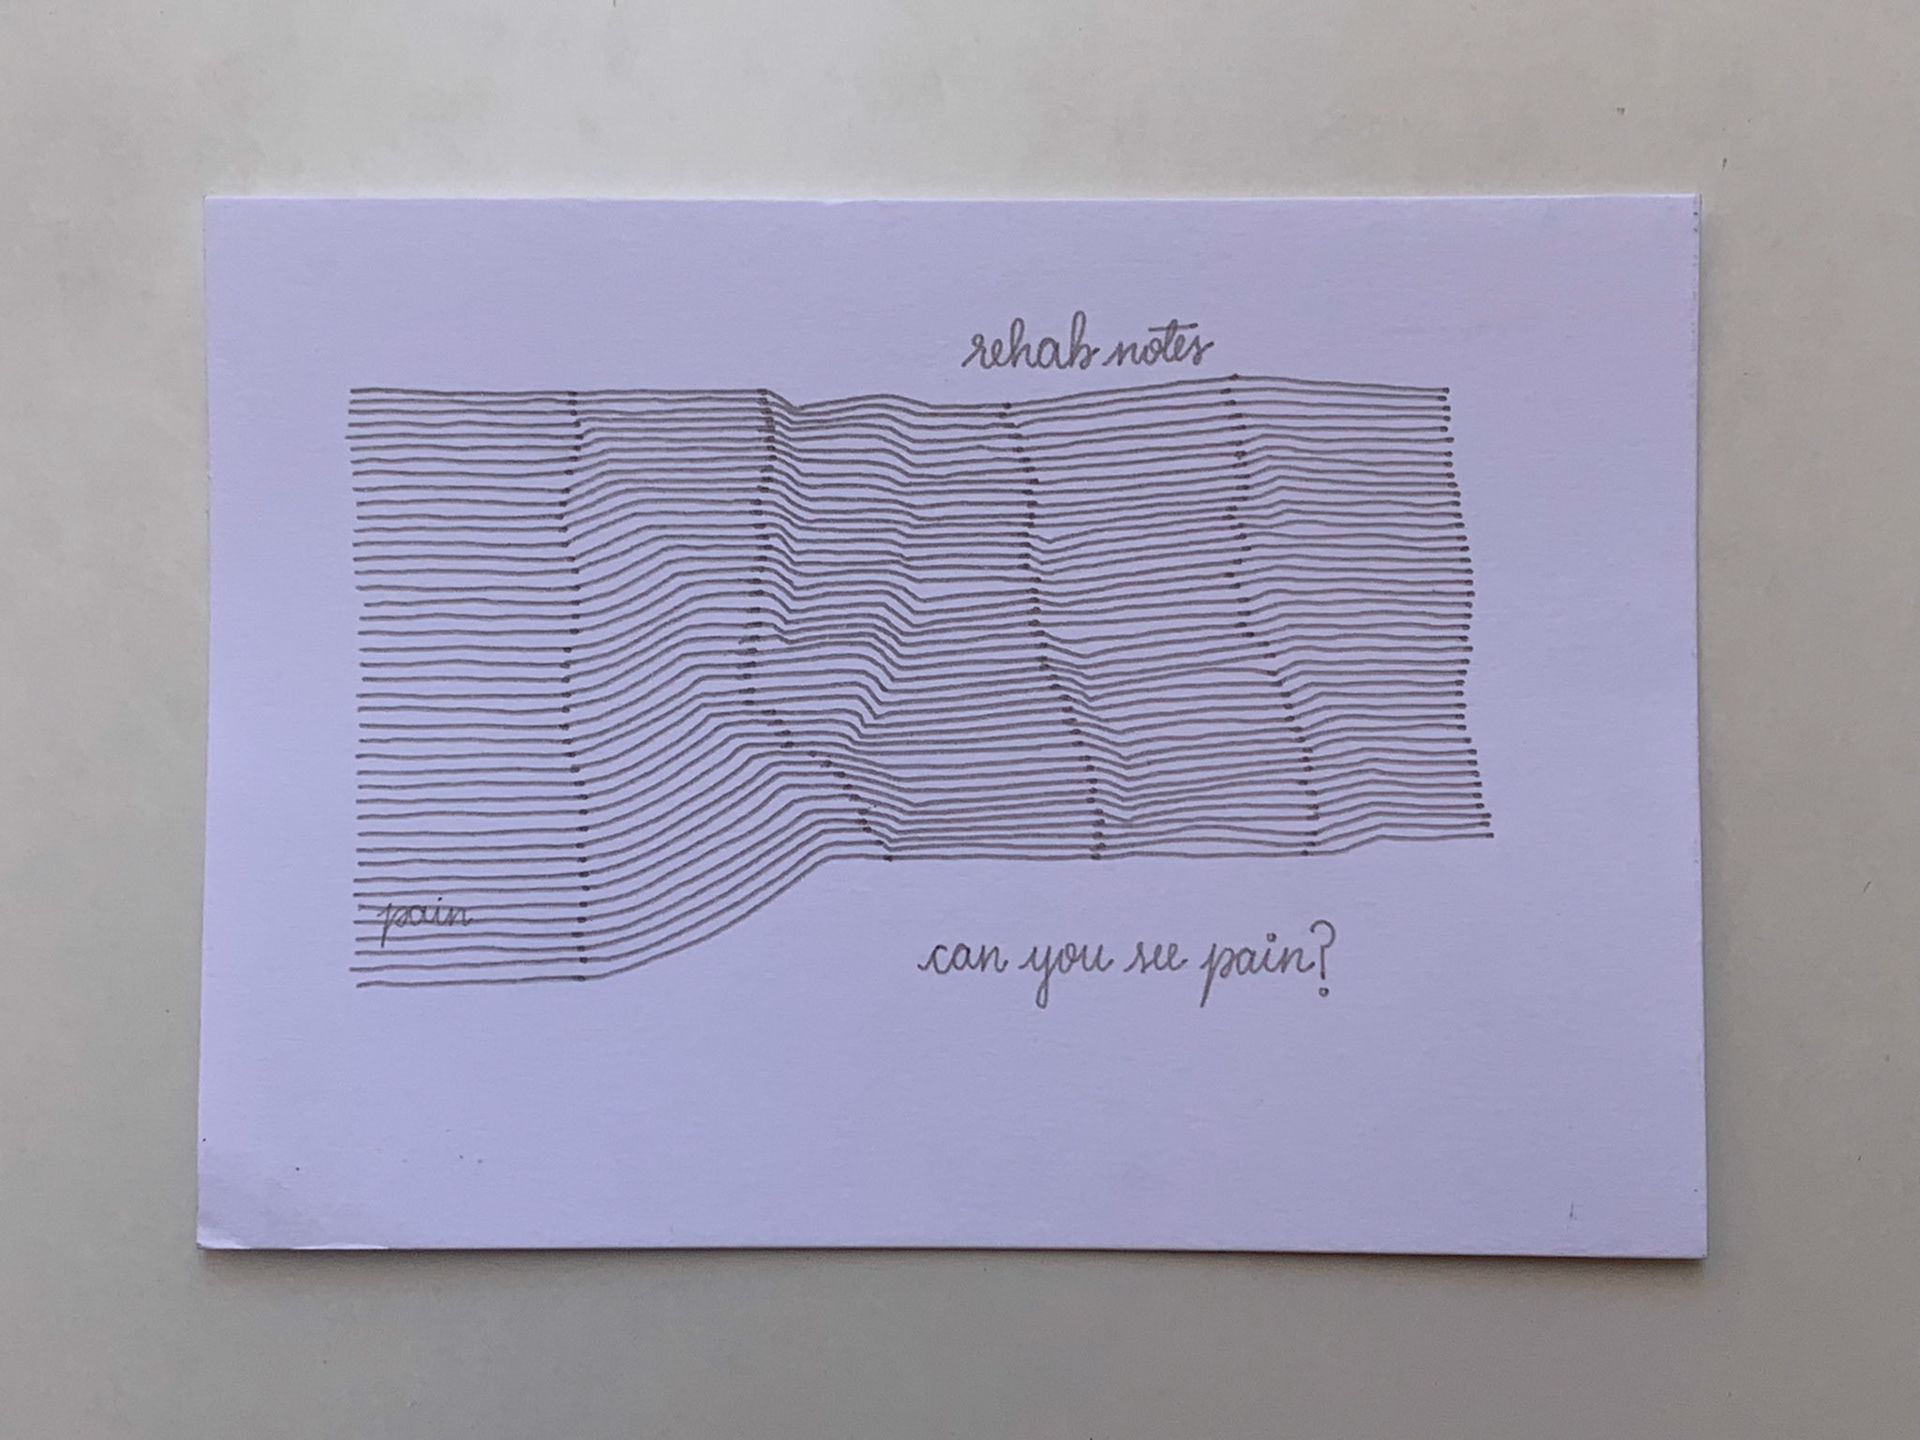 rehab notes
pain
can you see pain?